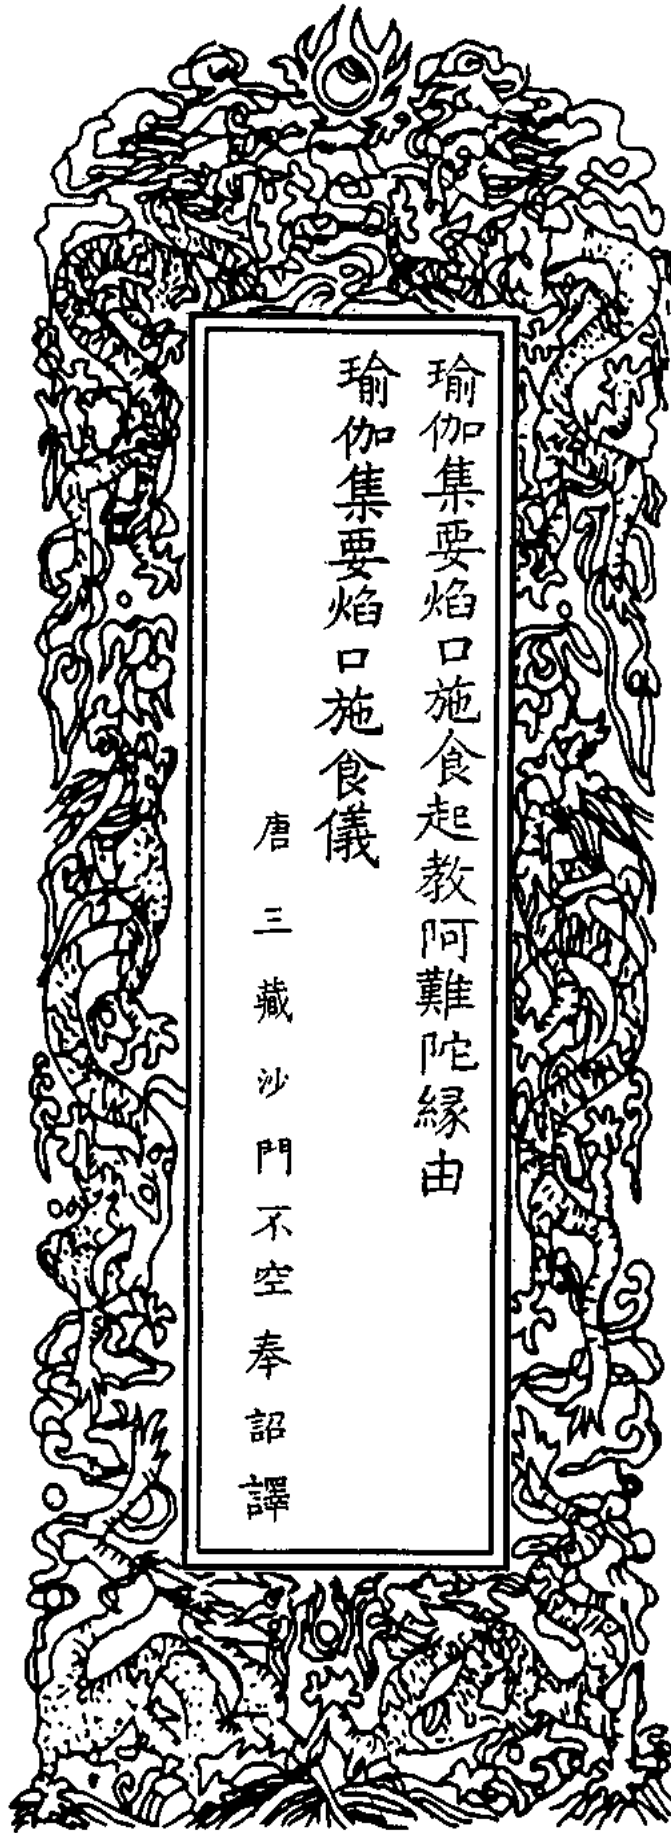 瑜伽集要焰口施食起教阿難陀緣由
瑜伽集要焰口施食儀
唐三藏沙門不空奉詔譯